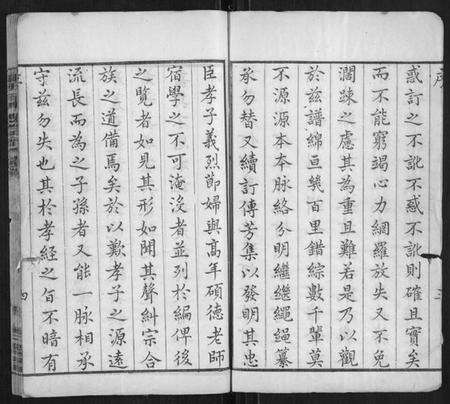 序
惑訂之不訛不惑不訛則確且實矣
而不能窮竭心力網羅放失又不免
濶踈之慮其為重且難若是乃以觀
於兹譜綿亘幾百里錯綜數千軰莫
不源源本本脉絡分明繼繼繩繩纂
承勿替又續訂傳芳集以發明其忠
三
臣孝子義烈節婦與髙年碩德老師
宿學之不可淹没者並列於編俾後
之覽者如見其形如聞其聲糾宗合
族之道備焉矣於以歎孝子之源逺
流長而為之子孫者又能一脉相承
守兹勿失也其於孝經之旨不暗有
四